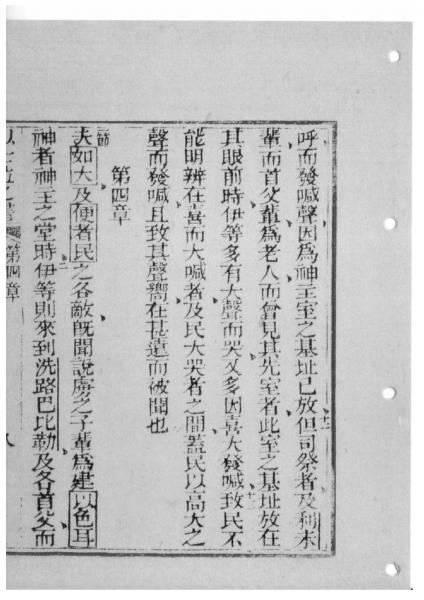 呼而發喊聲因爲神主室之基址已放十二但司祭者及利未
輩而首父輩爲老人而曾見其先室者此室之基址放在
其眼前時伊等多有大聲而哭又多因喜大發喊十三致民不
能明辨在喜而大喊者及民大哭者之間蓋民以高大之
聲而發喊且致其聲嚮在甚遠而被聞也
第四章
節夫如大及便者民之各敵既聞說虜多之子輩爲建以色耳
神者神主之堂時二伊等則來到洗路巴比勒及各首父而
之書 第四章 八